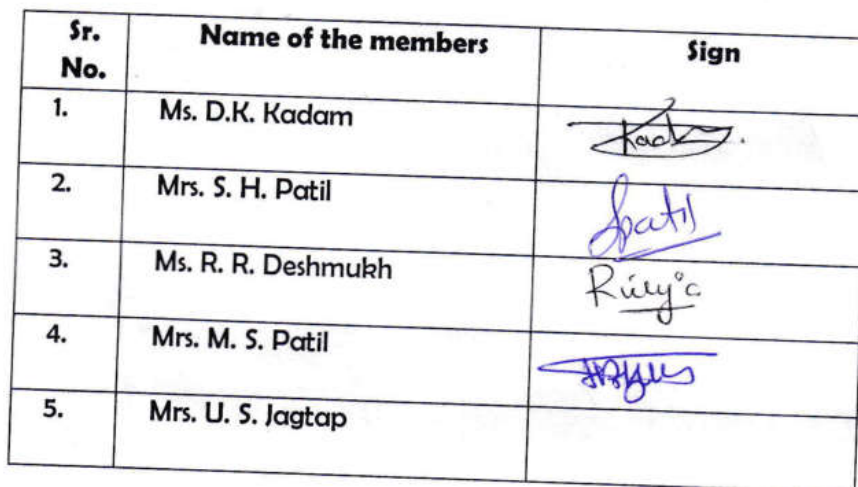 Sr. No. Name of the members Sign
1. Ms. D.K. Kadam
2. Mrs. S. H. Patil Spatil
3. Ms. R. R. Deshmukh
4. Mrs. M. S. Patil
5. Mrs. U. S. Jagtap